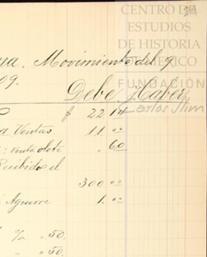 CENTRO DE
ESTUDIOS
DE HISTORIA
DE MÉXICO
FUNDACIÓN
Carlos Slim
Movimiento del 9
09.
Debe Haber
$ 22 14
Ventas 11 00
. 60
Recibido el
300 00
Aguirre 1 00
% " 50
" " 50